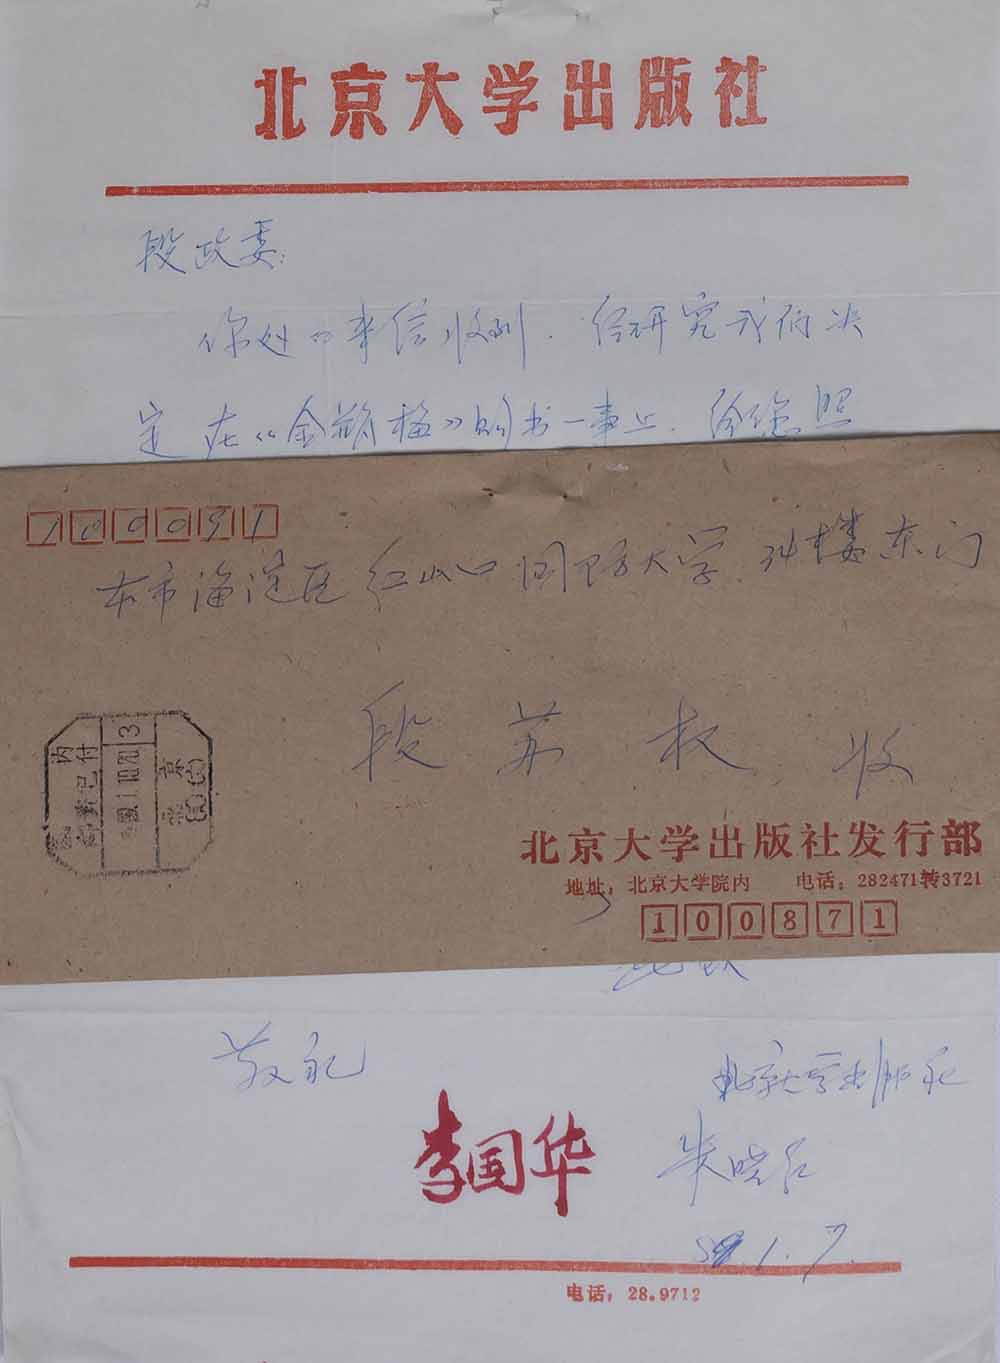 北京大学出版社
段政委:
你处的来信收到.经研究我们决
定在《金瓶梅》购书一事上.给您照
100091
本市海淀区红山口国防大学.34楼东门
段苏权 收
内
京
3
北京大学出版社发行部
地址:北京大学院内 电话:282471转3721
100871
敬礼
北京大学出版社
李国华
朱
1.7.
电话:28.9712